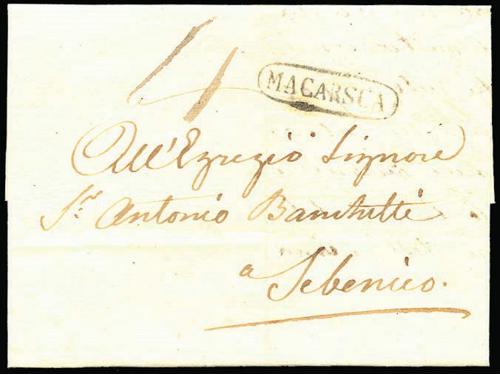 4
MACARSCA
All'Egregio Signore
Sr. Antonio Banchetti
a
Sebenico.